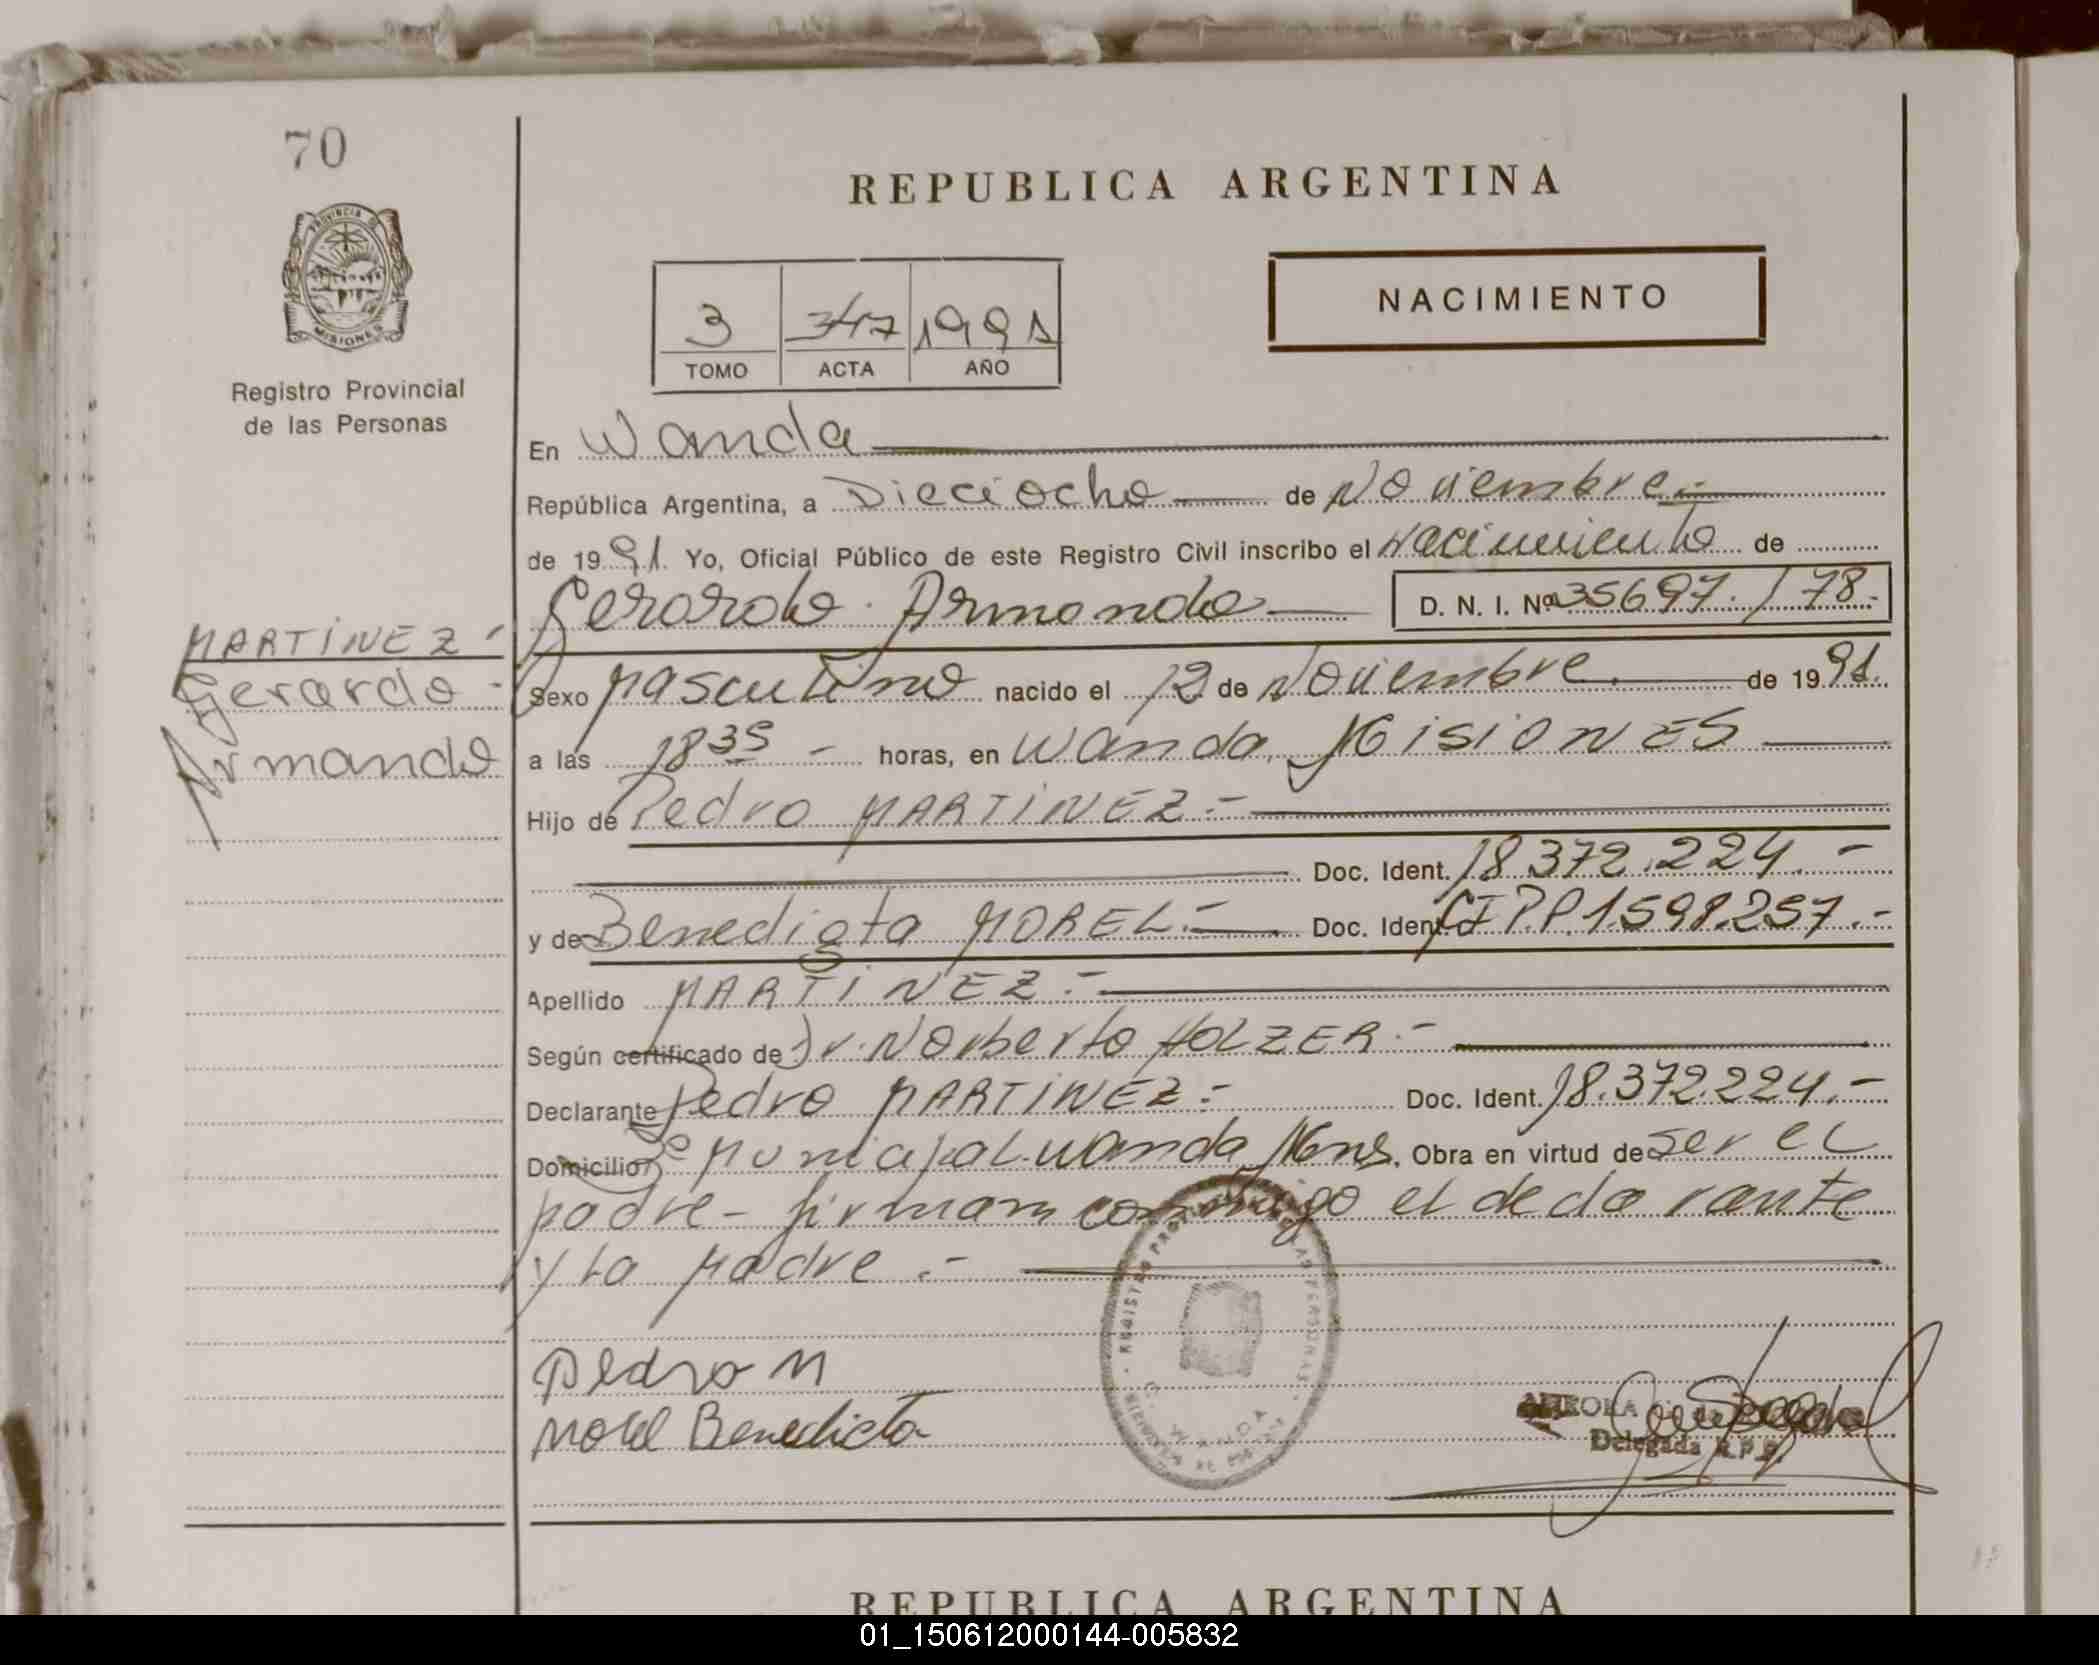 70
PROVINCIA DE
MISIONES
Registro Provincial
de las Personas
REPUBLICA ARGENTINA
3 347 1991
TOMO ACTA AÑO
NACIMIENTO
En Wanda
República Argentina, a Dieciocho de Noviembre.-
de 1991. Yo, Oficial Público de este Registro Civil inscribo el Nacimiento de
Gerardo Armando D. N. I. Nº 35697./78.-
MARTINEZ -
Gerardo -
Armando
Sexo Masculino nacido el 12 de Noviembre. de 1991.
a las 18 35 - horas, en Wanda, Misiones
Hijo de Pedro MARTINEZ.-
Doc. Ident. 18.372.224.-
y de Benedicta MOREL.- Doc. Ident. CI P.P. 1.598.257.-
Apellido MARTINEZ.-
Según certificado de Dr. Norberto HOLZER.-
Declarante Pedro MARTINEZ.- Doc. Ident. 18.372.224.-
Domicilio Bº Municipal Wanda Mnes. Obra en virtud de ser el
padre - firman conmigo el declarante
y la Madre .-
Pedro M
Morel Benedicta
REGISTRO PROVINCIAL DE LAS PERSONAS
WANDA
Delegada R.P.P.
REPUBLICA ARGENTINA
01_150612000144-005832